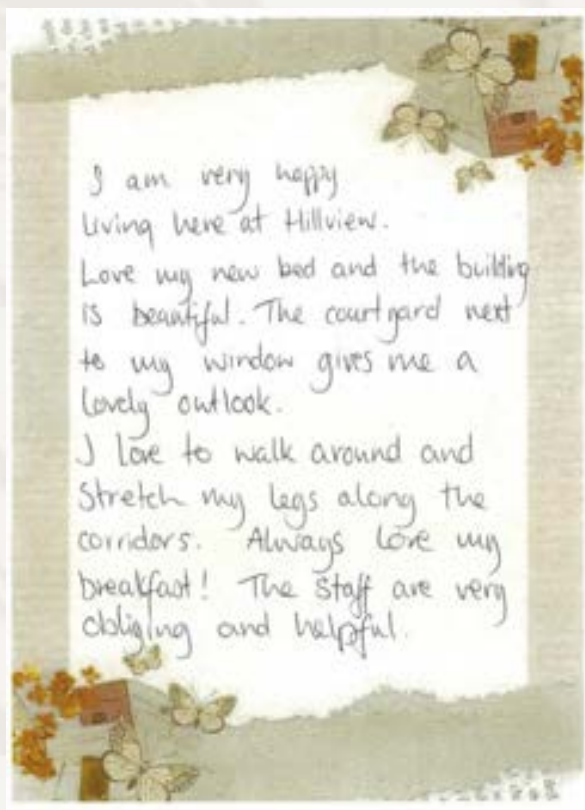 I am very happy
living here at Hillview.
Love my new bed and the building
is beautiful. The courtyard next
to my window gives me a
lovely outlook.
I love to walk around and
stretch my legs along the
corridors. Always love my
breakfast! The staff are very
obliging and helpful.